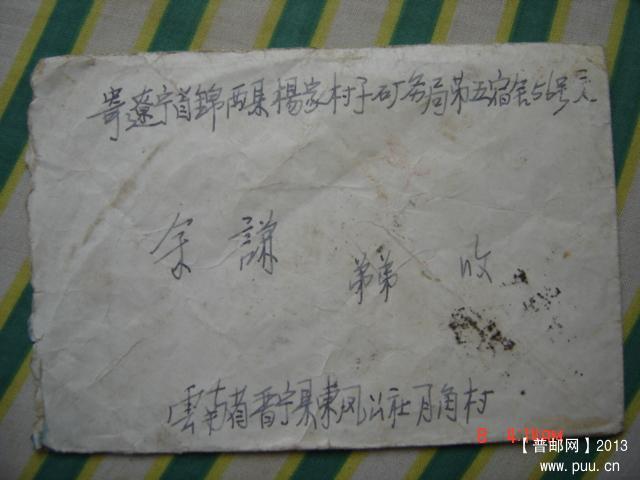 寄遼宁省錦西县楊家杖子矿务局第五宿舍56号
余謙 弟弟 收
雲南省晋宁县東风公社月角村
8 4:18PM
【普邮网】2013
www.puu.cn